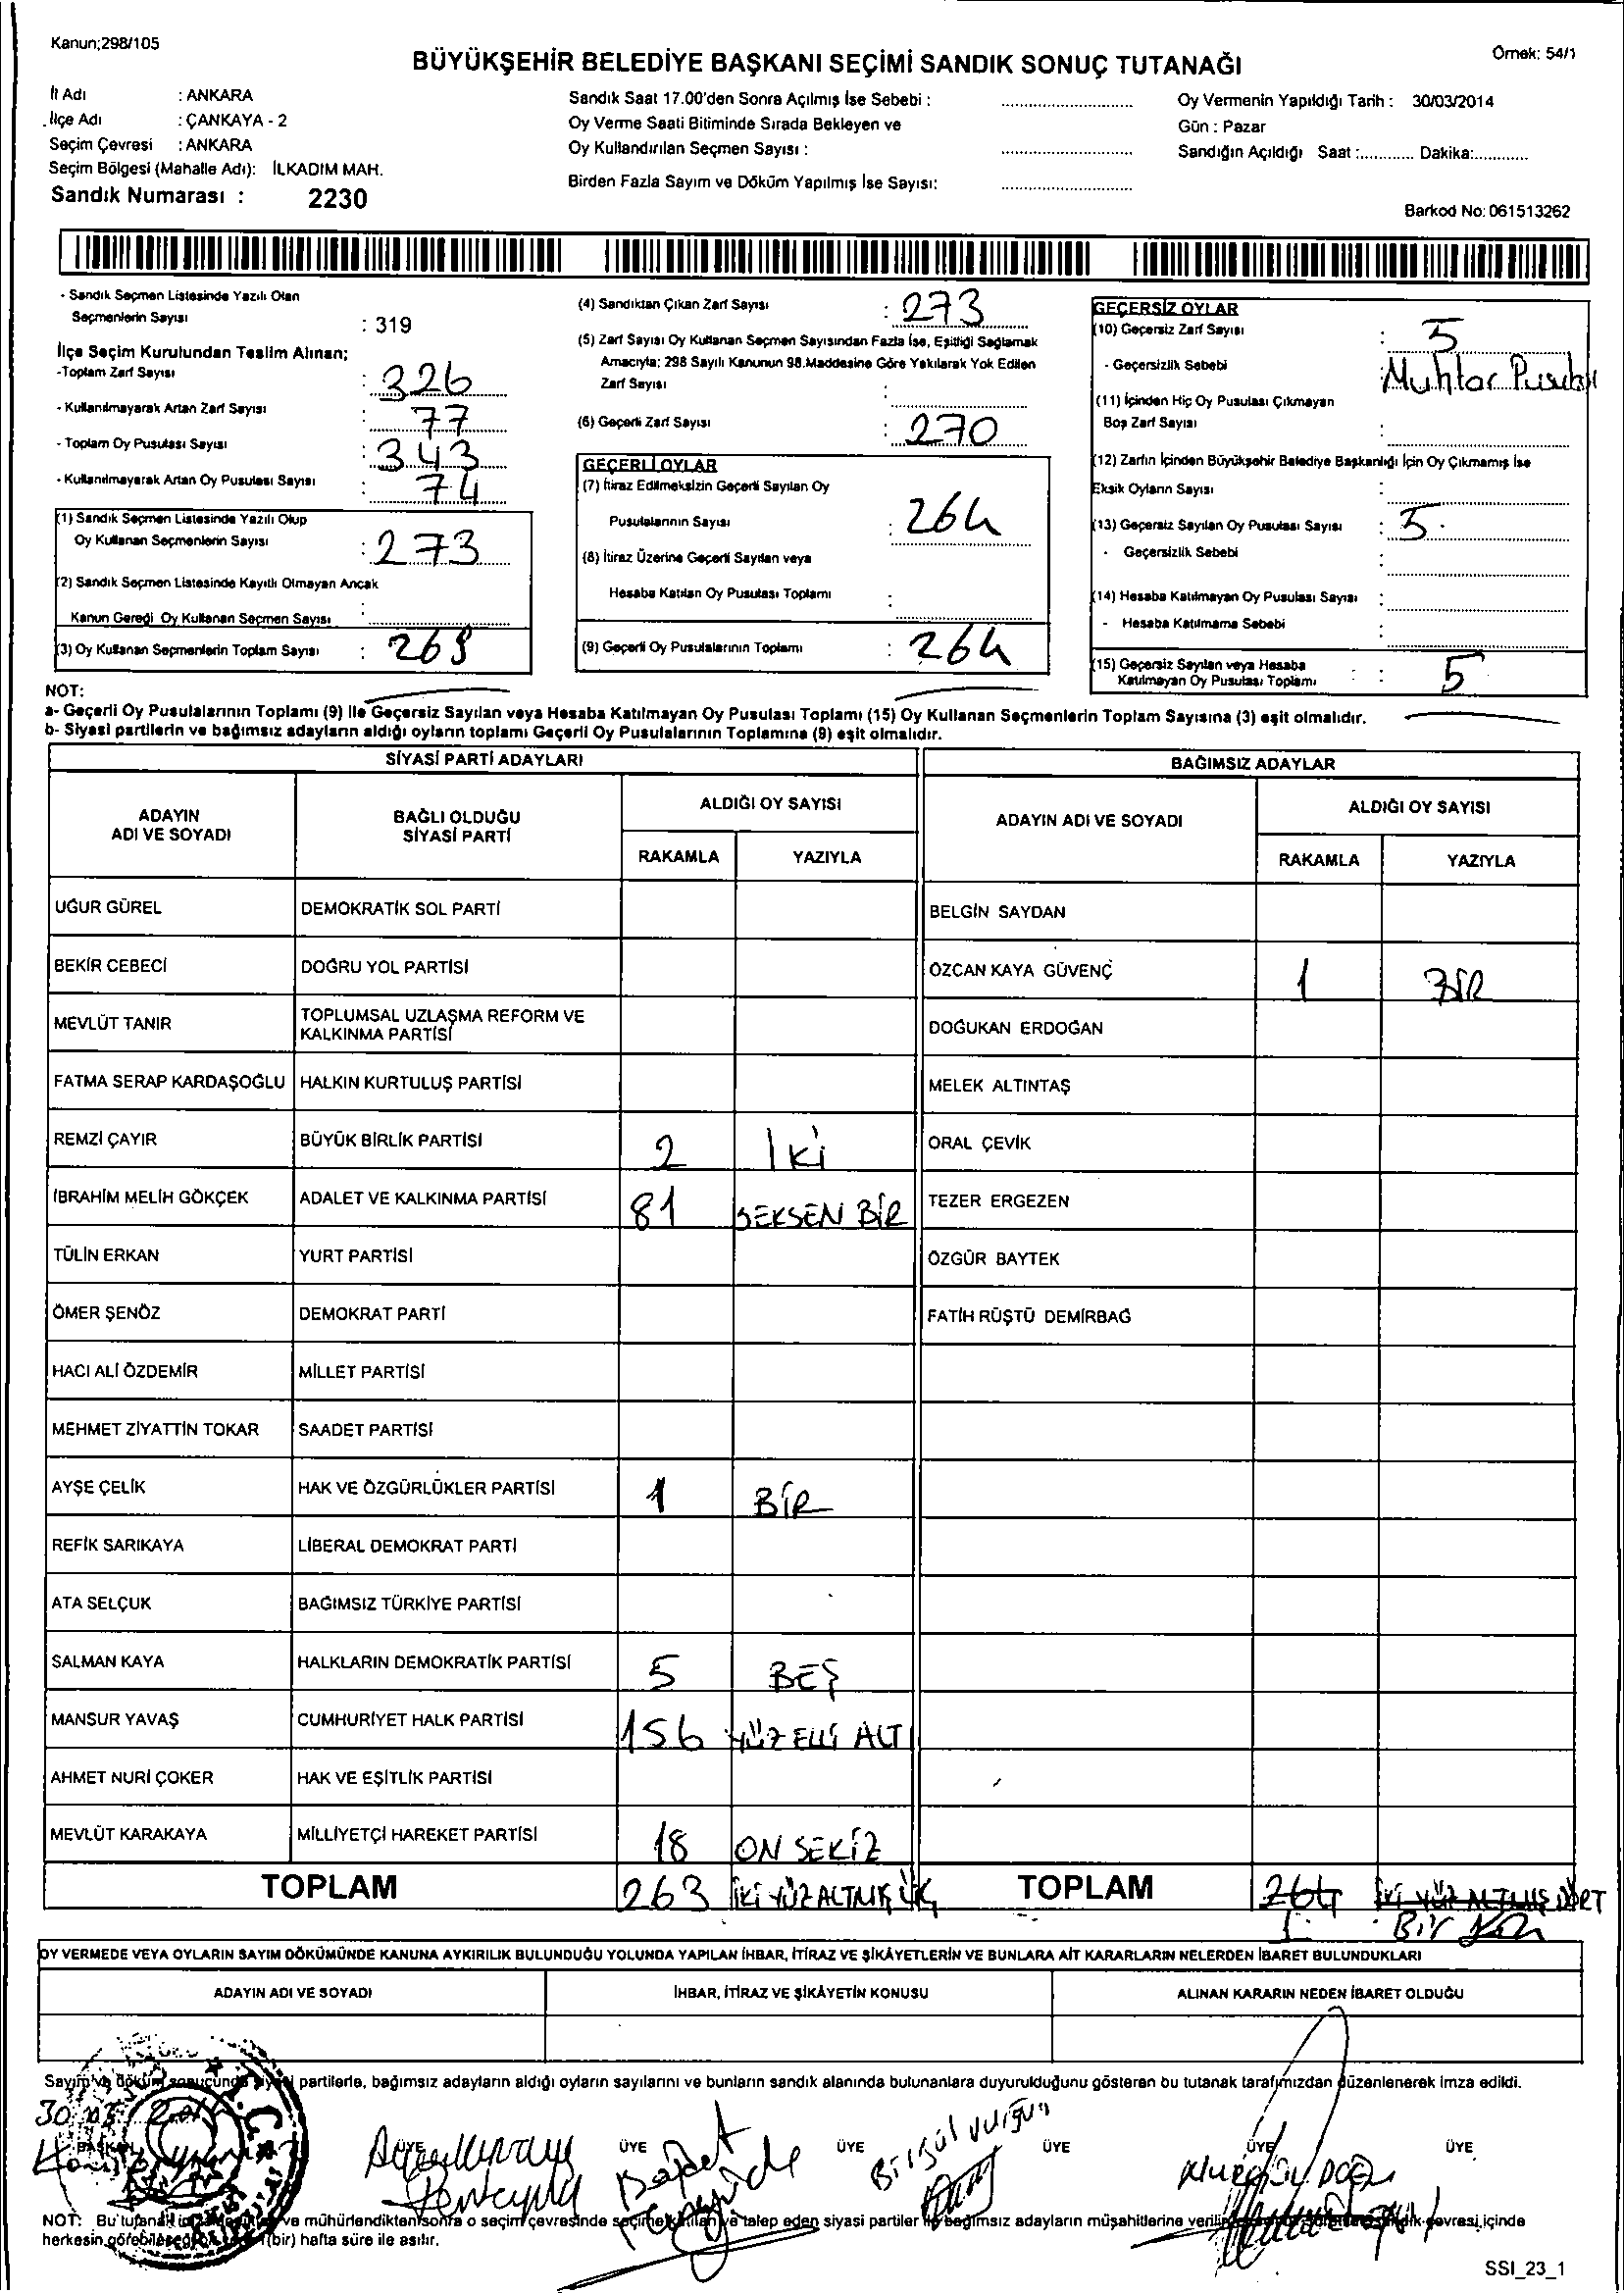 Kanun;298/105
BÜYÜKŞEHİR BELEDİYE BAŞKANI SEÇİMİ SANDIK SONUÇ TUTANAĞI
Örnek: 54/1
İl Adı : ANKARA
İlçe Adı : ÇANKAYA - 2
Seçim Çevresi : ANKARA
Seçim Bölgesi (Mahalle Adı): İLKADIM MAH.
Sandık Numarası : 2230
Sandık Saat 17.00'den Sonra Açılmış İse Sebebi :
Oy Verme Saati Bitiminde Sırada Bekleyen ve
Oy Kullandırılan Seçmen Sayısı :
Birden Fazla Sayım ve Döküm Yapılmış İse Sayısı:
Oy Vermenin Yapıldığı Tarih : 30/03/2014
Gün : Pazar
Sandığın Açıldığı Saat :............ Dakika:............
Barkod No: 061513262
- Sandık Seçmen Listesinde Yazılı Olan
Seçmenlerin Sayısı : 319
İlçe Seçim Kurulundan Teslim Alınan;
-Toplam Zarf Sayısı : 326
- Kullanılmayarak Artan Zarf Sayısı : 77
- Toplam Oy Pusulası Sayısı : 343
- Kullanılmayarak Artan Oy Pusulası Sayısı : 74
(1) Sandık Seçmen Listesinde Yazılı Olup
Oy Kullanan Seçmenlerin Sayısı : 273
(2) Sandık Seçmen Listesinde Kayıtlı Olmayan Ancak
Kanun Gereği Oy Kullanan Seçmen Sayısı :
(3) Oy Kullanan Seçmenlerin Toplam Sayısı : 269
(4) Sandıktan Çıkan Zarf Sayısı : 273
(5) Zarf Sayısı Oy Kullanan Seçmen Sayısından Fazla İse, Eşitliği Sağlamak
Amacıyla; 298 Sayılı Kanunun 98.Maddesine Göre Yakılarak Yok Edilen
Zarf Sayısı :
(6) Geçerli Zarf Sayısı : 270
GEÇERLİ OYLAR
(7) İtiraz Edilmeksizin Geçerli Sayılan Oy
Pusulalarının Sayısı : 264
(8) İtiraz Üzerine Geçerli Sayılan veya
Hesaba Katılan Oy Pusulası Toplamı :
(9) Geçerli Oy Pusulalarının Toplamı : 264
GEÇERSİZ OYLAR
(10) Geçersiz Zarf Sayısı : 5
- Geçersizlik Sebebi : Muhtar Pusulası
(11) İçinden Hiç Oy Pusulası Çıkmayan
Boş Zarf Sayısı :
(12) Zarfın İçinden Büyükşehir Belediye Başkanlığı İçin Oy Çıkmamış İse
Eksik Oyların Sayısı :
(13) Geçersiz Sayılan Oy Pusulası Sayısı : 5
- Geçersizlik Sebebi :
(14) Hesaba Katılmayan Oy Pusulası Sayısı :
- Hesaba Katılmama Sebebi :
(15) Geçersiz Sayılan veya Hesaba
Katılmayan Oy Pusulası Toplamı : 5
NOT:
a- Geçerli Oy Pusulalarının Toplamı (9) ile Geçersiz Sayılan veya Hesaba Katılmayan Oy Pusulası Toplamı (15) Oy Kullanan Seçmenlerin Toplam Sayısına (3) eşit olmalıdır.
b- Siyasi partilerin ve bağımsız adayların aldığı oyların toplamı Geçerli Oy Pusulalarının Toplamına (9) eşit olmalıdır.
SİYASİ PARTİ ADAYLARI
BAĞIMSIZ ADAYLAR
ADAYIN ADI VE SOYADI
BAĞLI OLDUĞU SİYASİ PARTİ
ALDIĞI OY SAYISI
RAKAMLA YAZIYLA
ADAYIN ADI VE SOYADI
ALDIĞI OY SAYISI
RAKAMLA YAZIYLA
UĞUR GÜREL DEMOKRATİK SOL PARTİ BELGİN SAYDAN
BEKİR CEBECİ DOĞRU YOL PARTİSİ ÖZCAN KAYA GÜVENÇ 1 BİR
MEVLÜT TANIR TOPLUMSAL UZLAŞMA REFORM VE KALKINMA PARTİSİ DOĞUKAN ERDOĞAN
FATMA SERAP KARDAŞOĞLU HALKIN KURTULUŞ PARTİSİ MELEK ALTINTAŞ
REMZİ ÇAYIR BÜYÜK BİRLİK PARTİSİ 2 İki ORAL ÇEVİK
İBRAHİM MELİH GÖKÇEK ADALET VE KALKINMA PARTİSİ 81 SEKSEN BİR TEZER ERGEZEN
TÜLİN ERKAN YURT PARTİSİ ÖZGÜR BAYTEK
ÖMER ŞENÖZ DEMOKRAT PARTİ FATİH RÜŞTÜ DEMİRBAĞ
HACI ALİ ÖZDEMİR MİLLET PARTİSİ
MEHMET ZİYATTİN TOKAR SAADET PARTİSİ
AYŞE ÇELİK HAK VE ÖZGÜRLÜKLER PARTİSİ 1 BİR
REFİK SARIKAYA LİBERAL DEMOKRAT PARTİ
ATA SELÇUK BAĞIMSIZ TÜRKİYE PARTİSİ
SALMAN KAYA HALKLARIN DEMOKRATİK PARTİSİ 5 BEŞ
MANSUR YAVAŞ CUMHURİYET HALK PARTİSİ 156 YÜZ ELLİ ALT
AHMET NURİ ÇOKER HAK VE EŞİTLİK PARTİSİ
MEVLÜT KARAKAYA MİLLİYETÇİ HAREKET PARTİSİ 18 ON SEKİZ
TOPLAM 263 İKİ YÜZ ALTMIŞ ÜÇ TOPLAM 264 İKİ YÜZ ALTMIŞ DÖRT
1 Bir
OY VERMEDE VEYA OYLARIN SAYIM DÖKÜMÜNDE KANUNA AYKIRILIK BULUNDUĞU YOLUNDA YAPILAN İHBAR, İTİRAZ VE ŞİKÂYETLERİN VE BUNLARA AİT KARARLARIN NELERDEN İBARET BULUNDUKLARI
ADAYIN ADI VE SOYADI İHBAR, İTİRAZ VE ŞİKÂYETİN KONUSU ALINAN KARARIN NEDEN İBARET OLDUĞU
Sayım ve döküm sonucunda siyasi partilerle, bağımsız adayların aldığı oyların sayılarını ve bunların sandık alanında bulunanlara duyurulduğunu gösteren bu tutanak tarafımızdan düzenlenerek imza edildi.
30 03 2014
BAŞKAN ÜYE ÜYE ÜYE ÜYE ÜYE ÜYE
Birgül Vurgun
NOT: Bu tutanak ve mühürlendikten sonra o seçim çevresinde seçime katılan ve talep eden siyasi partiler ile bağımsız adayların müşahitlerine çevresi içinde
herkesin görebileceği (bir) hafta süre ile asılır.
SSI_23_1